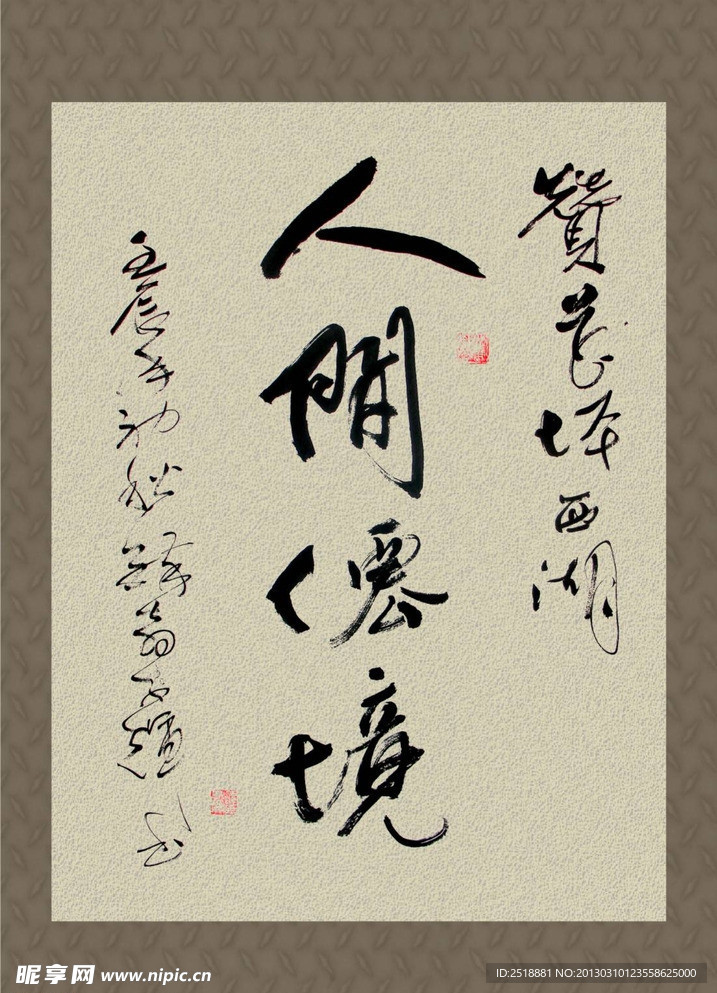 贊花坪西湖
人間僊境
壬辰年初秋
昵享网 www.nipic.cn
ID:2518881 NO:20130310123558625000